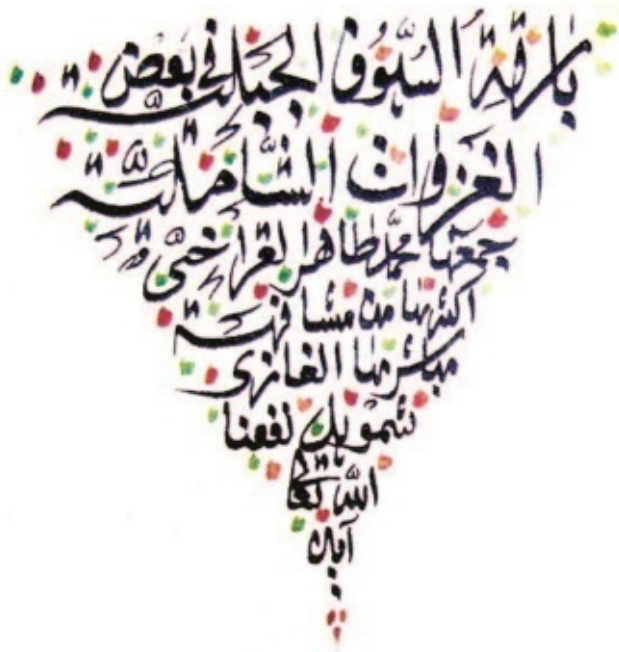 بارقة السيوف الجبلية في بعض
الغزوات الشاملية
جمعها محمد طاهر القراخي
اكثرها من مشافهة
مباشرها الغازي
شمويل نفعنا
الله تعالى به
آمين